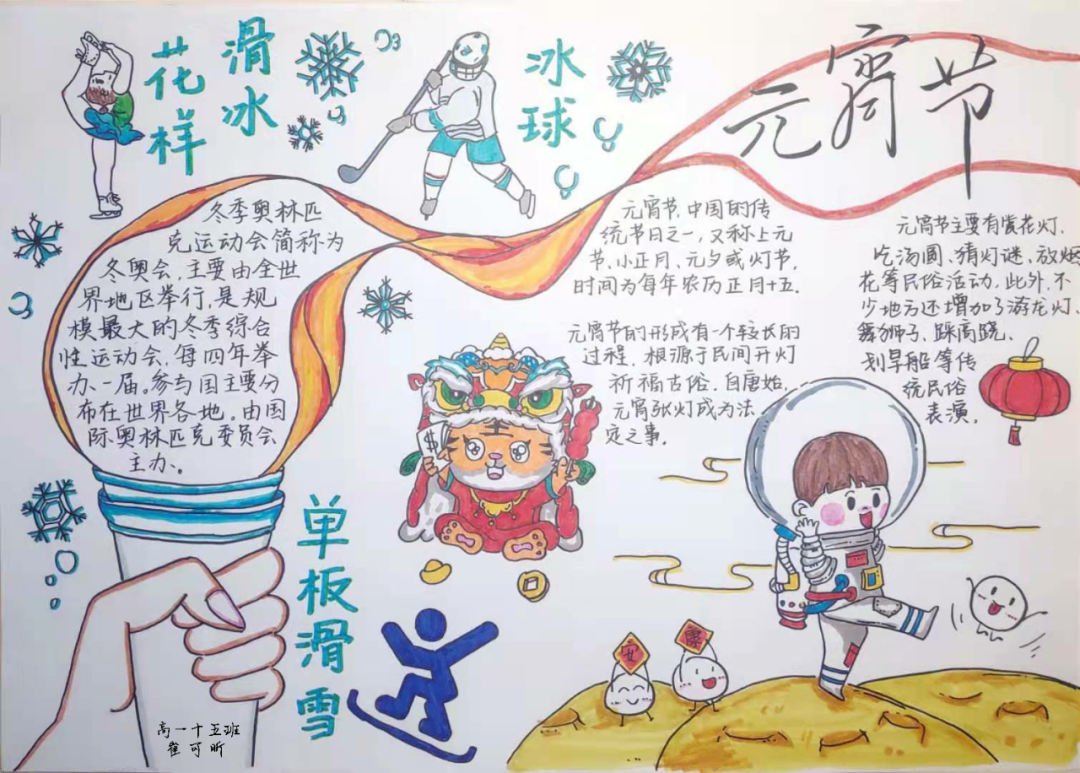 花样
滑冰
冰球
元宵节
冬季奥林匹
克运动会简称为
冬奥会,主要由全世
界地区举行,是规
模最大的冬季综合
性运动会,每四年举
办一届。参与国主要分
布在世界各地。由国
际奥林匹克委员会
主办。
元宵节,中国的传
统节日之一,又称上元
节、小正月、元夕或灯节,
时间为每年农历正月十五.
元宵节的形成有一个较长的
过程,根源于民间开灯
祈福古俗,自唐始,
元宵张灯成为法
定之事.
元宵节主要有赏花灯、
吃汤圆、猜灯谜、放烟
花等民俗活动,此外,不
少地方还增加了游龙灯、
舞狮子、踩高跷、
划旱船等传
统民俗
表演.
$
单板滑雪
高一十五班
崔可昕